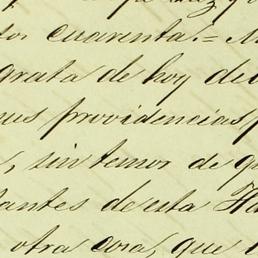 tos cuarenta = M
grata de hoy deb
mas providencias p
, sin temor de q
tantes de esta Ha
otra cosa, que